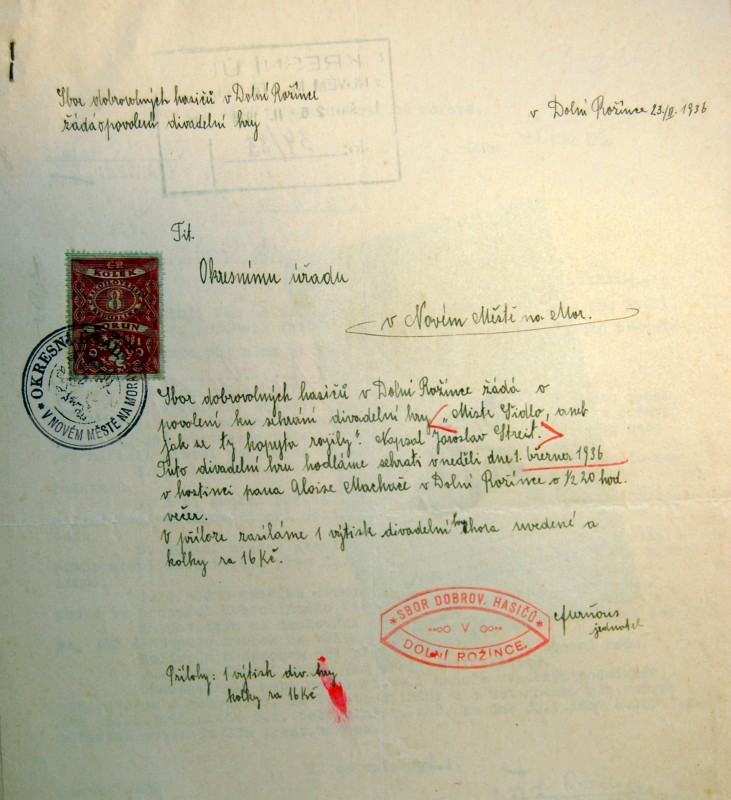 Sbor dobrovolných hasičů v Dolní Rožínce
žádá o povolení divadelní hry
v Dolní Rožínce 23/II. 1936
Tit.
Okresnímu úřadu
v Novém Městě na Mor.
KOLEK
8
KORUN
OKRESNÍ
V NOVÉM MĚSTĚ NA MORAVĚ
Sbor dobrovolných hasičů v Dolní Rožínce žádá o
povolení ku sehrání divadelní hry „Mistr Šidlo, aneb
jak se ty kopyta rojily". Napsal Jaroslav Streit.
Tuto divadelní hru hodláme sehrati v neděli dne 1. března 1936
v hostinci pana Aloise Machače v Dolní Rožínce o ½ 20 hod.
večer.
V příloze zasíláme 1 výtisk divadelní hry shora uvedené a
kolky za 16 Kč.
SBOR DOBROV. HASIČŮ
V
DOLNÍ ROŽÍNCE.
jednatel
Přílohy: 1 výtisk div. hry
kolky za 16 Kč